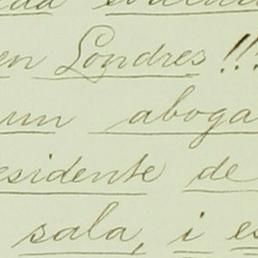 en Londres!!!
un aboga
esidente de
sala, i es